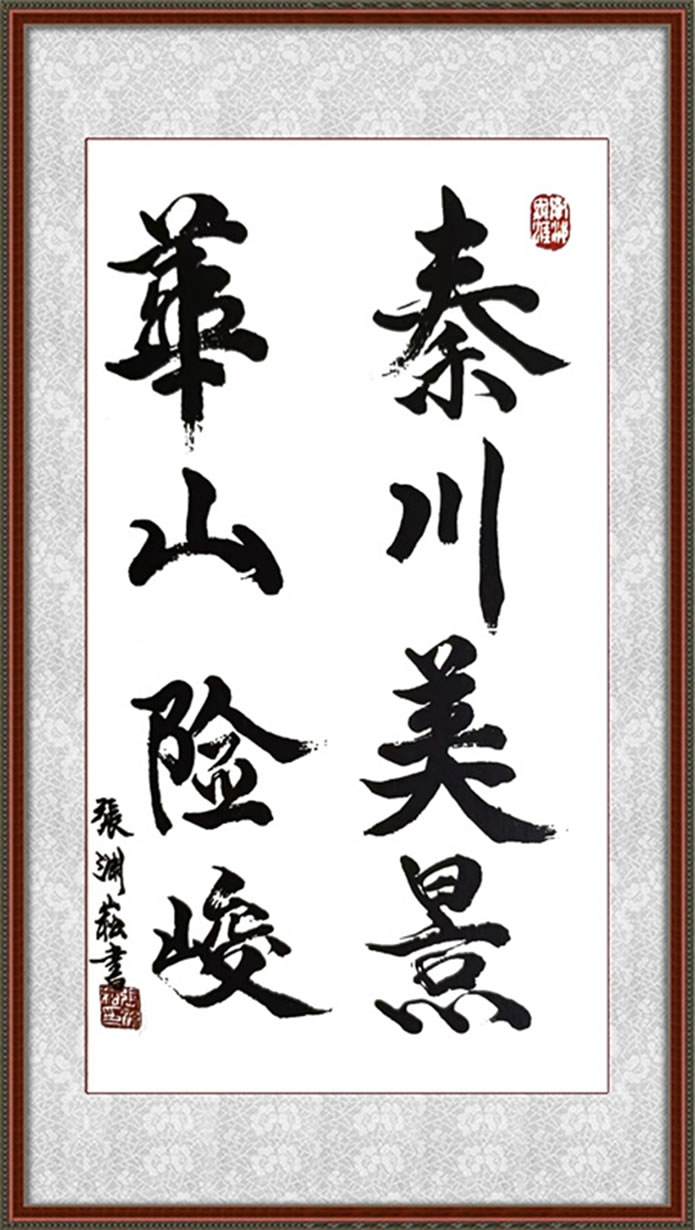 秦川美景
華山险峻
張渊崧書